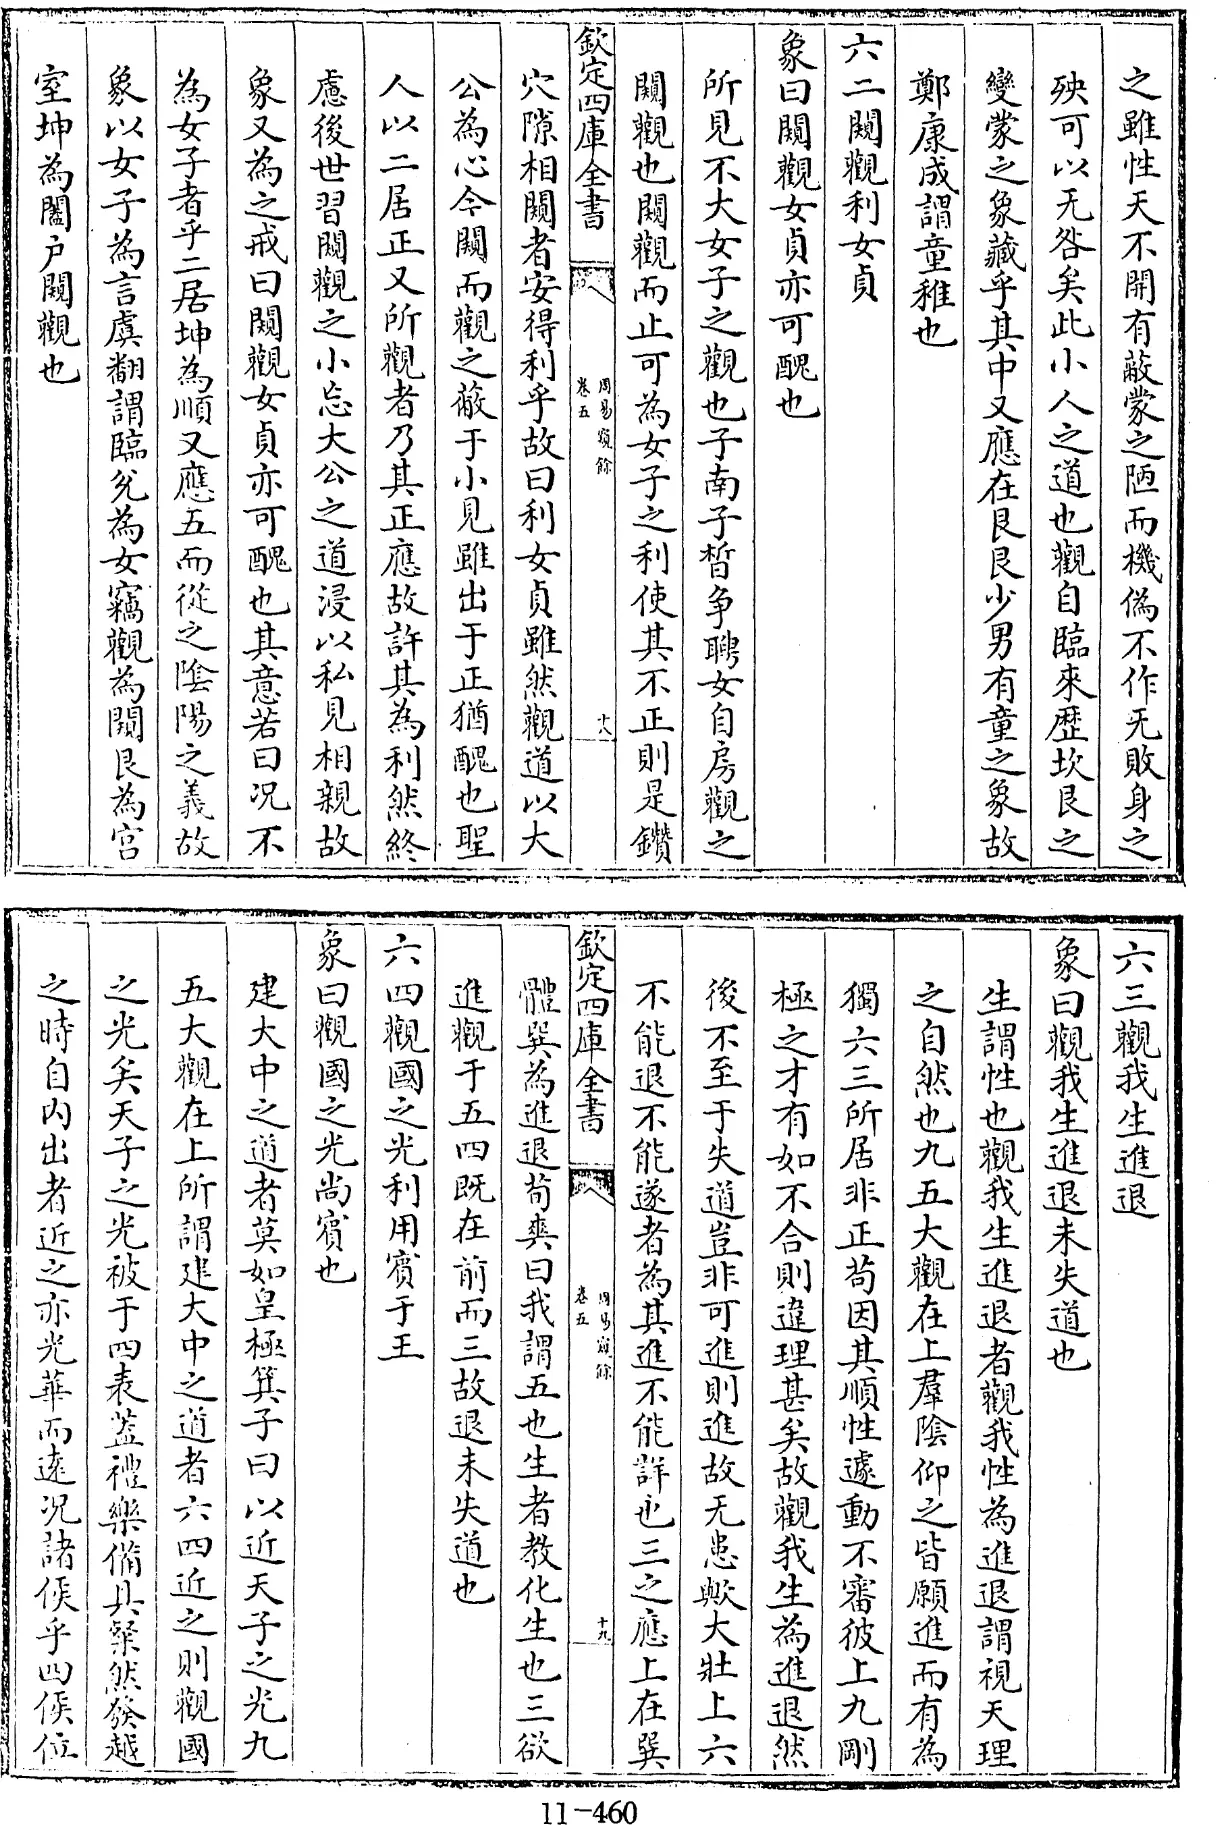 之雖性天不開有蔽蒙之陋而機偽不作无敗身之
殃可以无咎矣此小人之道也觀自臨來歴坎艮之
變蒙之象藏乎其中又應在艮艮少男有童之象故
鄭康成謂童稚也
六二闚觀利女貞
象曰闚觀女貞亦可醜也
所見不大女子之觀也子南子晳争聘女自房觀之
闚觀也闚觀而止可為女子之利使其不正則是鑽
欽定四庫全書
周易窺餘
卷五
十八
穴隙相闚者安得利乎故曰利女貞雖然觀道以大
公為心今闚而觀之蔽于小見雖出于正猶醜也聖
人以二居正又所觀者乃其正應故許其為利然終
慮後世習闚觀之小忘大公之道浸以私見相親故
象又為之戒曰闚觀女貞亦可醜也其意若曰况不
為女子者乎二居坤為順又應五而從之陰陽之義故
象以女子為言虞翻謂臨兌為女竊觀為闚艮為宫
室坤為闔户闚觀也
六三觀我生進退
象曰觀我生進退未失道也
生謂性也觀我生進退者觀我性為進退謂視天理
之自然也九五大觀在上羣陰仰之皆願進而有為
獨六三所居非正茍因其順性遽動不審彼上九剛
極之才有如不合則違理甚矣故觀我生為進退然
後不至于失道豈非可進則進故无患歟大壯上六
不能退不能遂者為其進不能詳也三之應上在巽
欽定四庫全書
周易窺餘
卷五
十九
體巽為進退荀爽曰我謂五也生者教化生也三欲
進觀于五四既在前而三故退未失道也
六四觀國之光利用賓于王
象曰觀國之光尚賓也
建大中之道者莫如皇極箕子曰以近天子之光九
五大觀在上所謂建大中之道者六四近之則觀國
之光矣天子之光被于四表葢禮樂備具粲然發越
之時自内出者近之亦光華而逺况諸侯乎四侯位
11-460